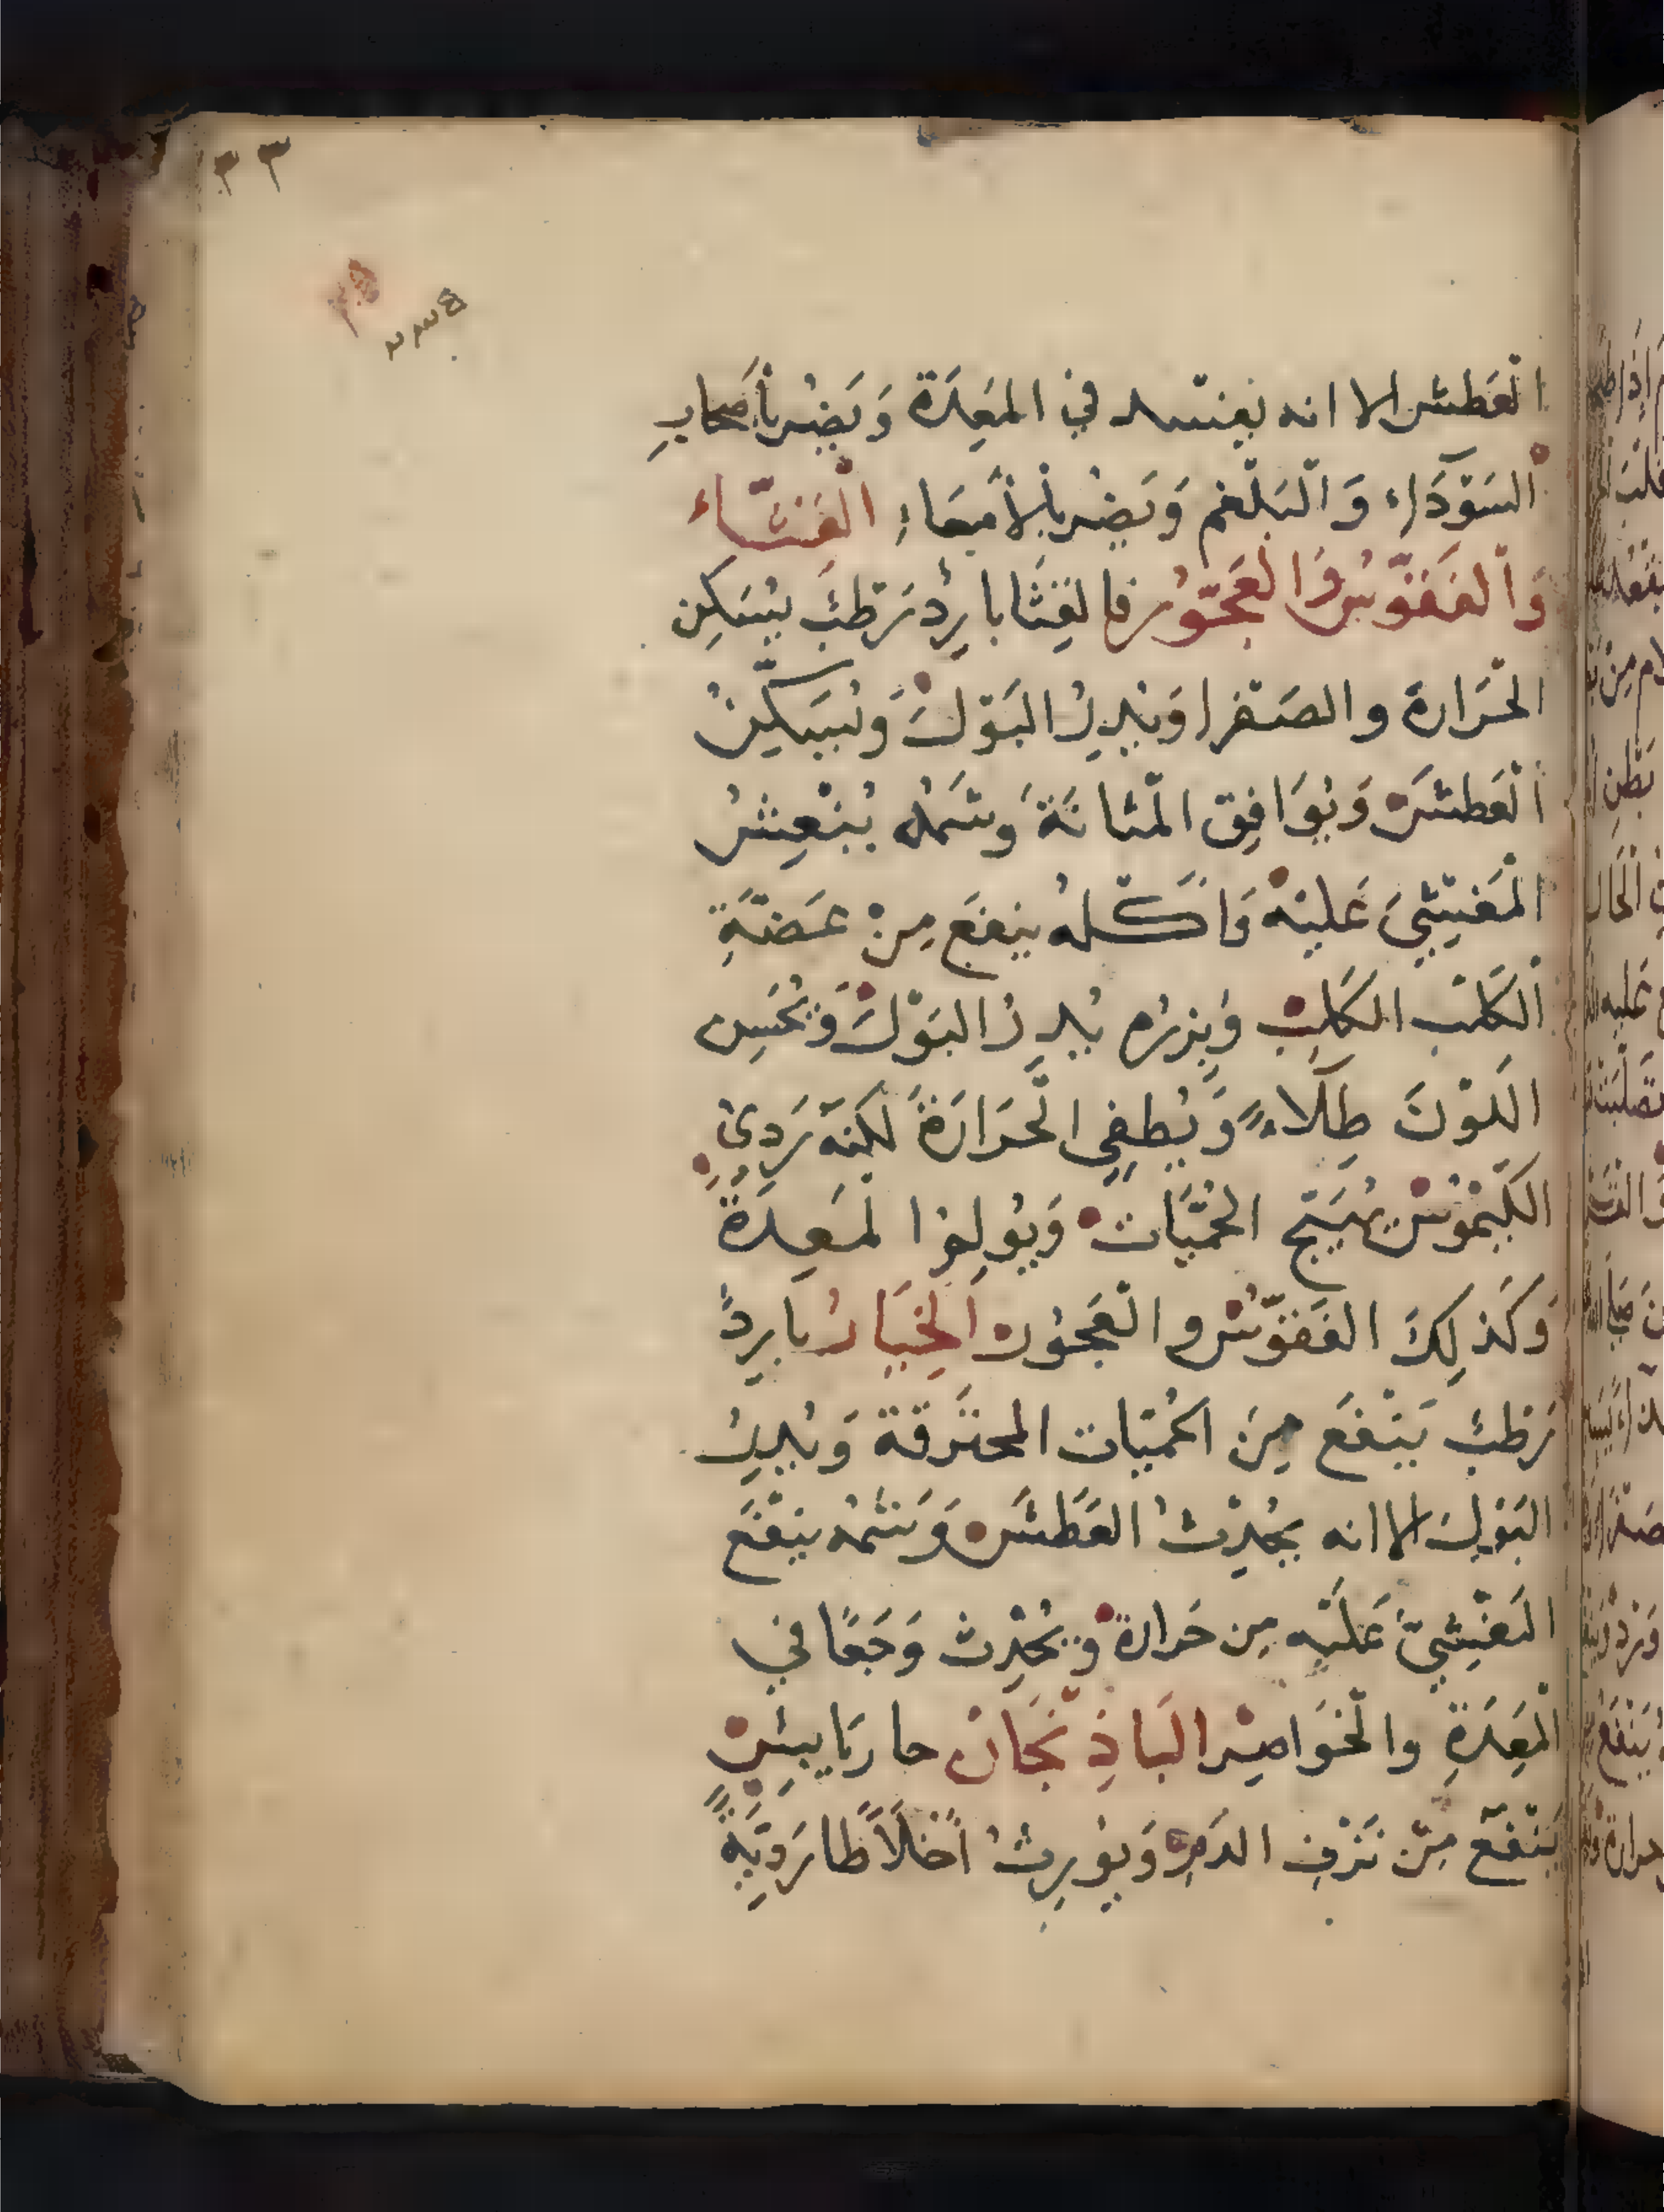 ٣٣
العَطش الا انه يفسد في المَعِدَة وَيَضُر بأصحابِ
السَوْدَاء وَالبَلْغم وَيَضُر بالأمْعَاءِ القثاء
وَالفَقّوس وَالعَجّوُر فالقثا بارِدْ رَطبْ يُسَكِن
الحَرَارة والصَفرا وَيُدِرُ البَوْلَ وَيُسَكِنُ
العَطشَ وَيُوَافِق المثانَةَ وَشمُه يُنْعِشُ
المَغْشِيَ عَليْه وَاَكْلهُ ينفَع مِنْ عَضّةِ
الكَلْب الكَلِبْ وَبزرُه يُدِرُ البَوْلَ وَيُحَسِن
اللَوْنَ طِلَاءً وَيُطفِي الحَرَارَةَ لكِنَهُ رَدِئ
الكَيْمُوسْ يُهَيّج الحُمّيَاتْ وَيُولِم المَعِدَةَ
وَكَذلِكَ الفَقّوُس والعَجوُر الخِيَارُ بارِدْ
رَطبْ يَنْفَع مِنَ الحُمّيَات المحتَرقة وَيُدِرُ
البَوْل الا انه يُحْدِثُ العَطَشَ وَشمُه يَنْفَع
المَغْشِيَّ عَليْه مِن حَرارة وَيُحْدِث وَجَعًا في
المَعِدَةِ والخَواصِر البَاذِنْجَانْ حار يَابِسْ
يَنْفَع مِنْ نَزْفِ الدَمِ وَيُورِثُ اَخْلَاطا رَدِيّةً